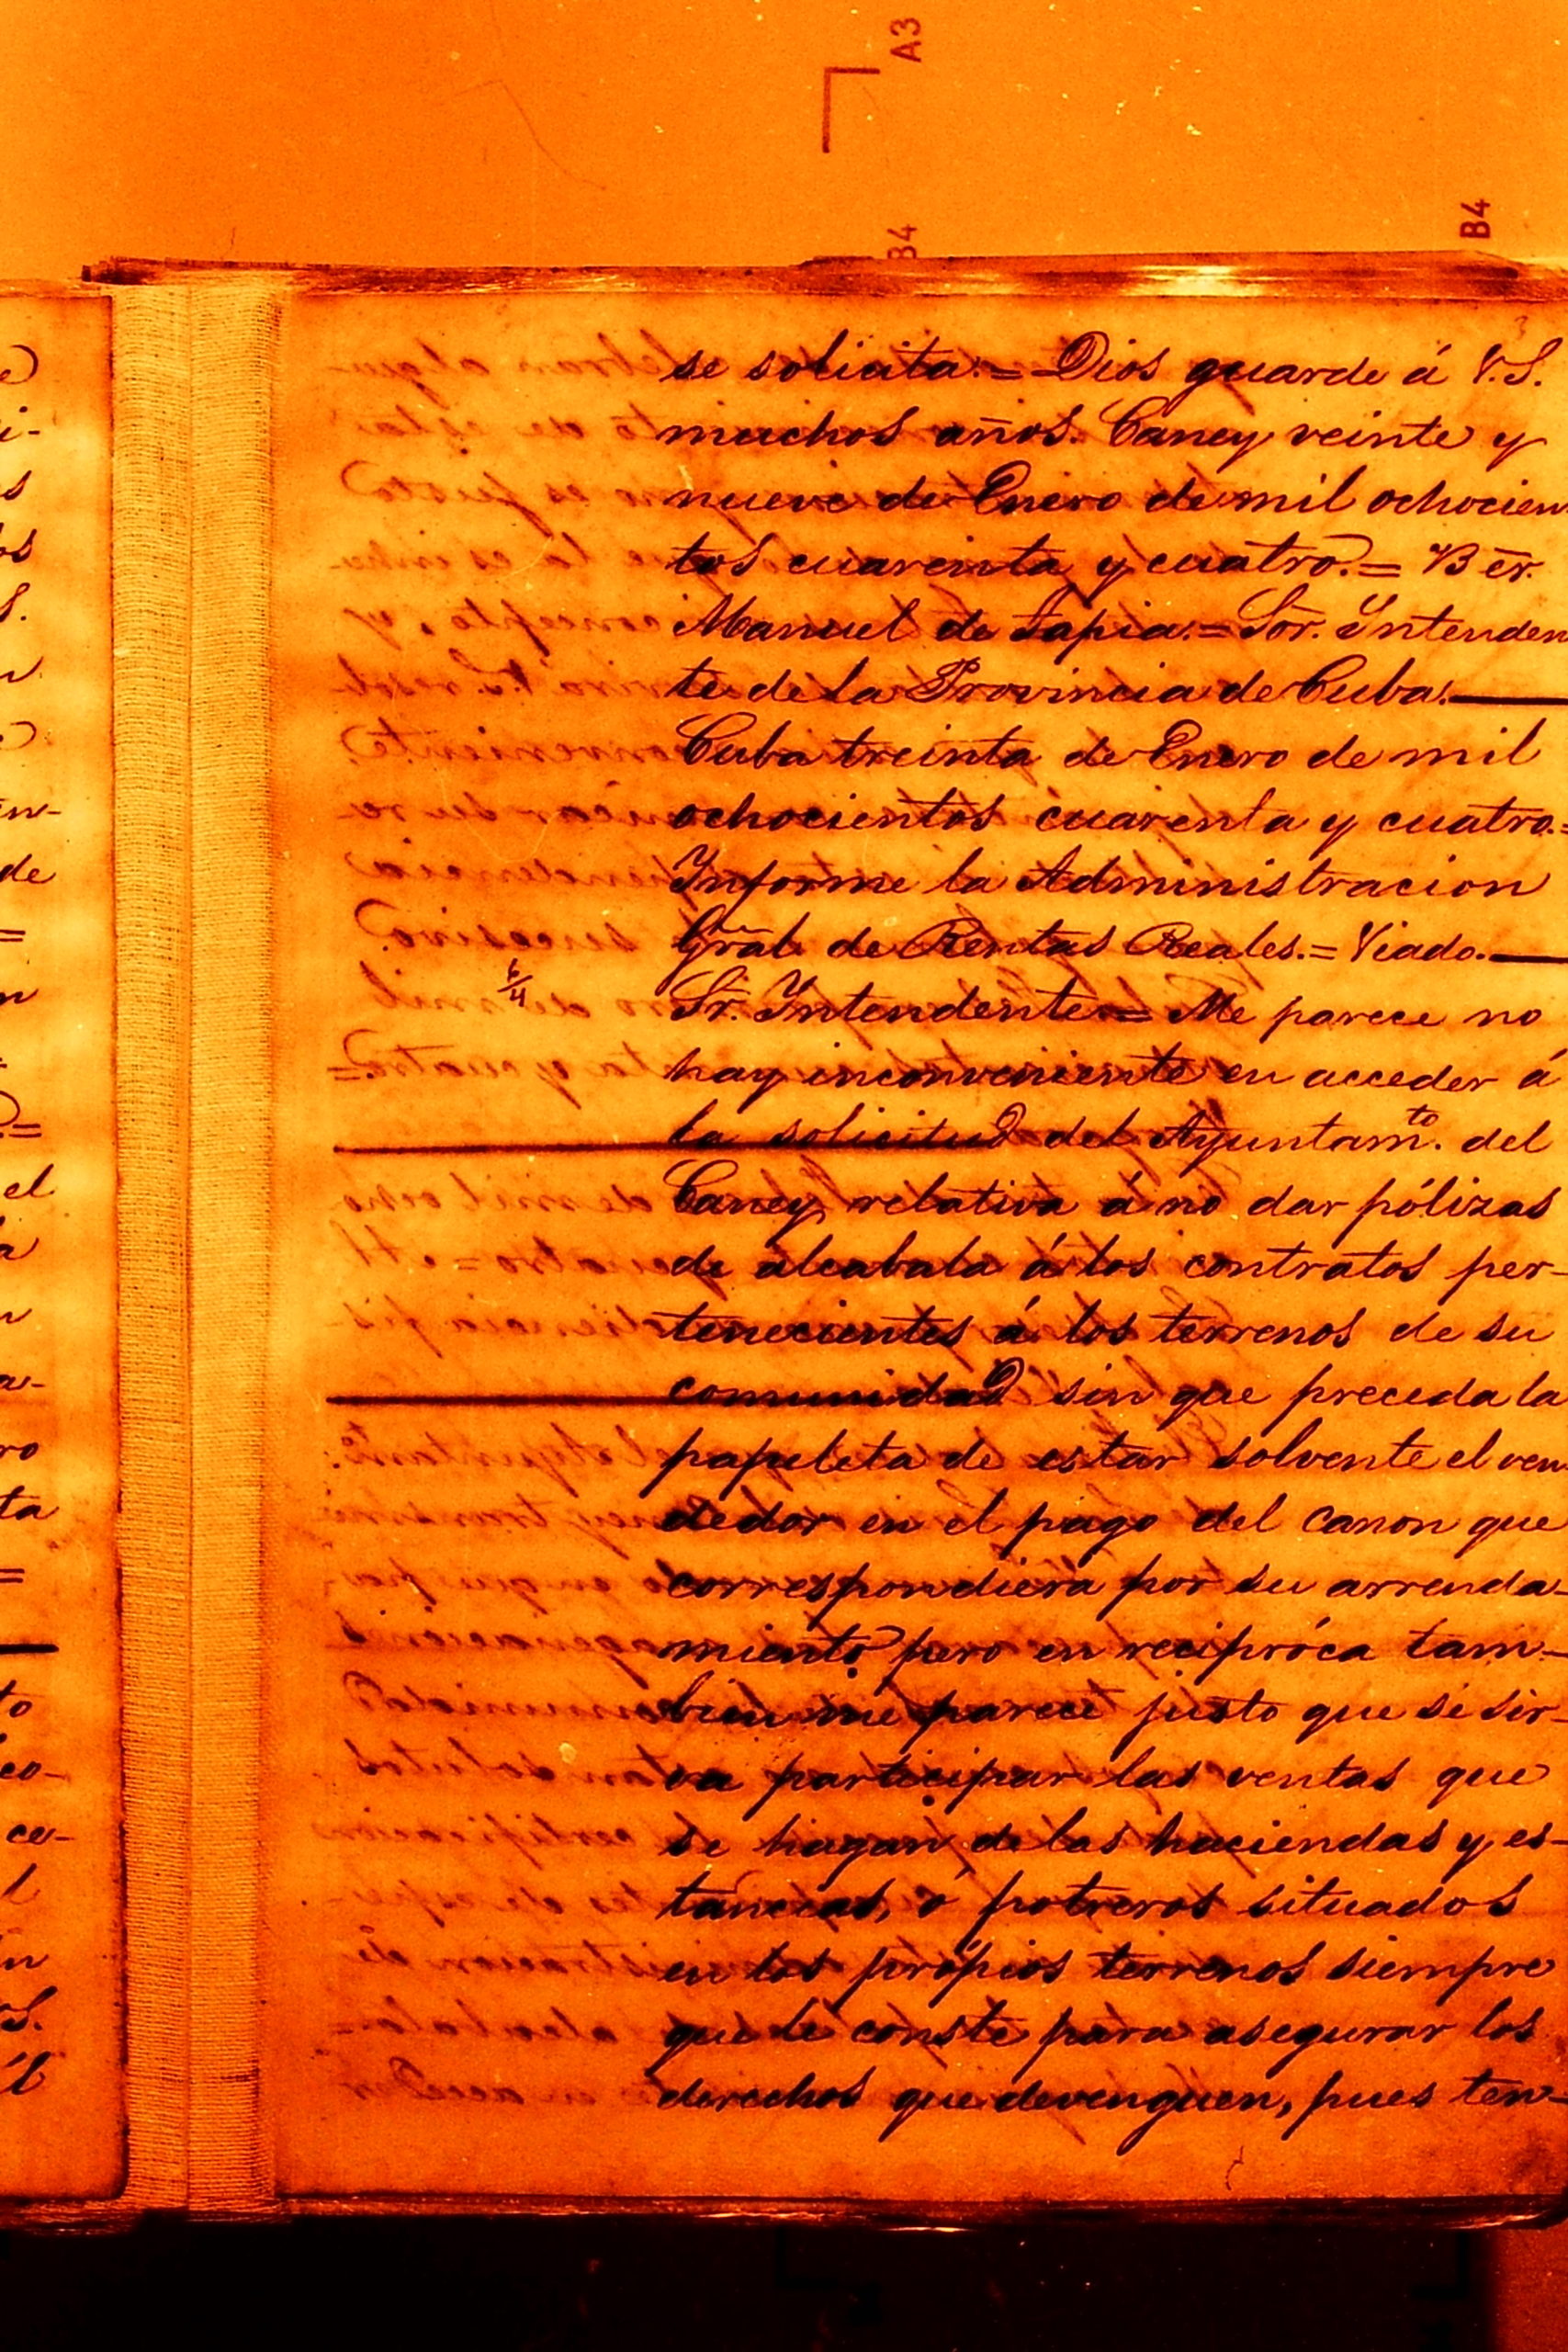 A3
B4
B4
se solicita.= Dios guarde á V.S.
muchos años. Caney veinte y
nueve de Enero de mil ochocien
tos cuarenta y cuatro.= Bēr.
Manuel de Tapia.= Sōr. Yntenden
te de la Provincia de Cuba.
Cuba treinta de Enero de mil
ochocientos cuarenta y cuatro.=
Ynforme la Administracion
Grāl. de Rentas Reales.= Viado.
6/4
Sr. Yntendente= Me parece no
hay inconveniente en acceder á
la solicitud del Ayuntamto. del
Caney relativa á no dar pólizas
de alcabala á los contratos per-
tenecientes á los terrenos de su
comunidad sin que preceda la
papeleta de estar solvente el ven
dedor en el pago del canon que
correspondiera por su arrenda
miento pero en recipróca tam-
bien me parece justo que se sir-
va participar las ventas que
se hagan de las haciendas y es-
tancias, ó potreros situados
en los própios terrenos siempre
que le conste para asegurar los
derechos que devenguen, pues ten-